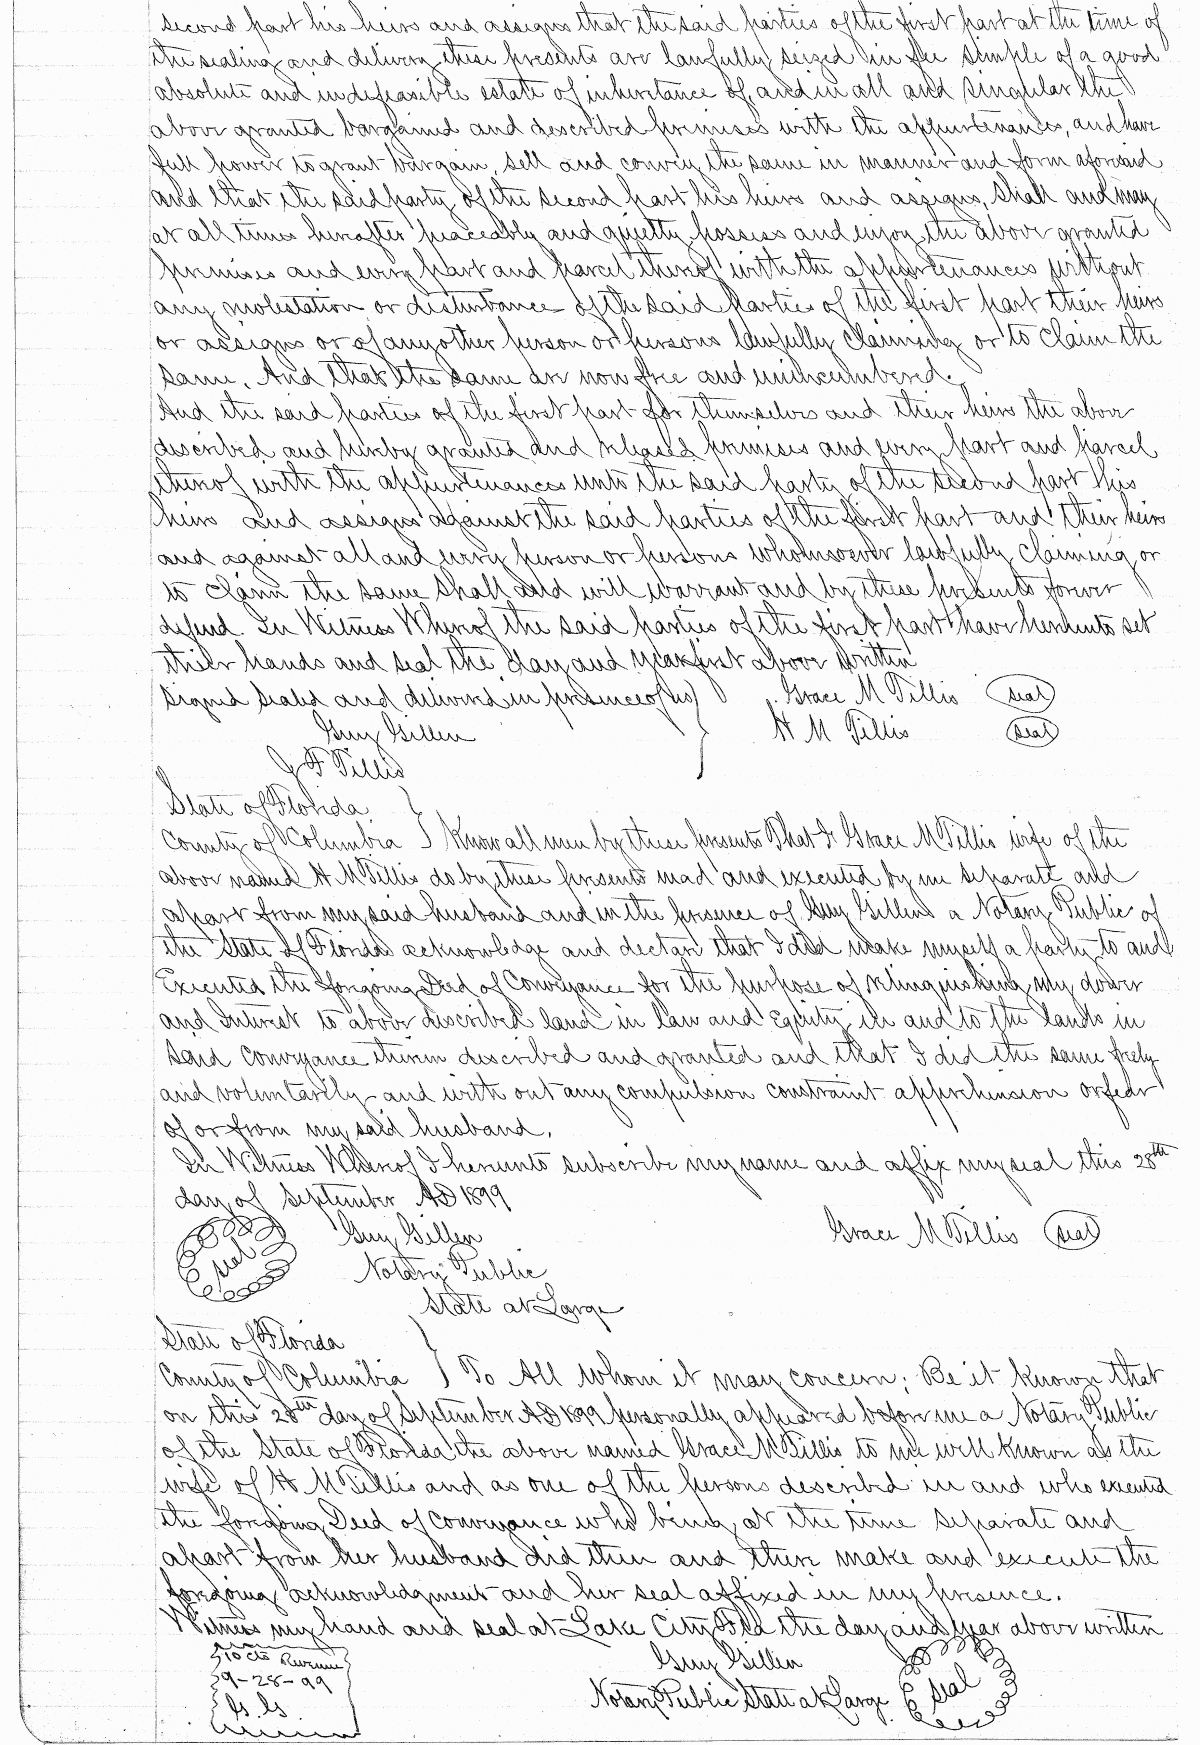 second part his heirs and assigns that the said parties of the first part at the time of
the sealing and delivery these presents are lawfully seized in fee simple of a good
absolute and indefeasible estate of inheritance of, and in all and singular the
above granted bargained and described premises with the appurtenances, and have
full power to grant bargain, sell and convey, the same in manner and form aforesaid
and that the said party of the second part his heirs and assigns, shall and may
at all times hereafter peaceably and quietly possess and enjoy the above granted
premises and every part and parcel thereof with the appurtenances without
any molestation or disturbance of the said parties of the first part their heirs
or assigns or of any other person or persons lawfully claiming or to claim the
same. And that the same are now free and unincumbered.
And the said parties of the first part for themselves and their heirs the above
described and hereby granted and released premises and every part and parcel
thereof with the appurtenances unto the said party of the second part his
heirs and assigns against the said parties of the first part and their heirs
and against all and every person or persons whomsoever lawfully claiming or
to claim the same shall and will warrant and by these presents forever
defend. In Witness Whereof the said parties of the first part have hereunto set
their hands and seal the day and year first above written
Signed Sealed and delivered in presence of us } Grace M Tillis (seal)
Guy Gillen H M Tillis (seal)
J F Tillis
State of Florida }
County of Columbia } Know all men by these presents That I Grace M Tillis wife of the
above named H M Tillis do by these presents mad and executed by me separate and
apart from my said husband and in the presence of Guy Gillens a Notary Public of
the State of Florida acknowledge and declare that I did make myself a party to and
Executed the forgoing Deed of Conveyance for the purpose of relinquishing my dower
and Interest to above described land in law and Equity in and to the lands in
said conveyance therein described and granted and that I did the same freely
and voluntarily and with out any compulsion constraint apprehension or fear
of or from my said husband.
In Witness Whereof I hereunto subscribe my name and affix my seal this 28th
day of September AD 1899
(seal) Guy Gillen Grace M Tillis (seal)
Notary Public
State at Large
State of Florida }
County of Columbia } To All Whom it may concern; Be it known that
on this 28th day of September AD 1899 personally appeared before me a Notary Public
of the State of Florida the above named Grace M Tillis to me well known as the
wife of H M Tillis and as one of the persons described in and who executed
the forgoing Deed of conveyance who being at the time separate and
apart from her husband did then and there make and execute the
forgoing acknowledgment and her seal affixed in my presence.
Witness my hand and seal at Lake City Fla the day and year above written
10 cts Revenue Guy Gillen
9-28-99 Notary Public State at Large (seal)
G. G.